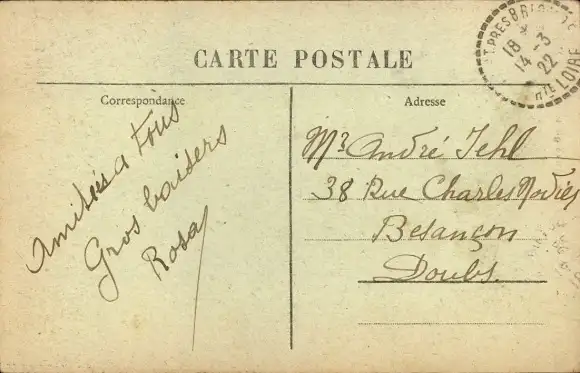 CARTE POSTALE
Correspondance
Amitiés a tous
Gros baisers
Rosa
Adresse
Mr André Jehl
38 Rue Charles Nodier
Besançon
Doubs.
18
14 -3
22
Hte LOIRE